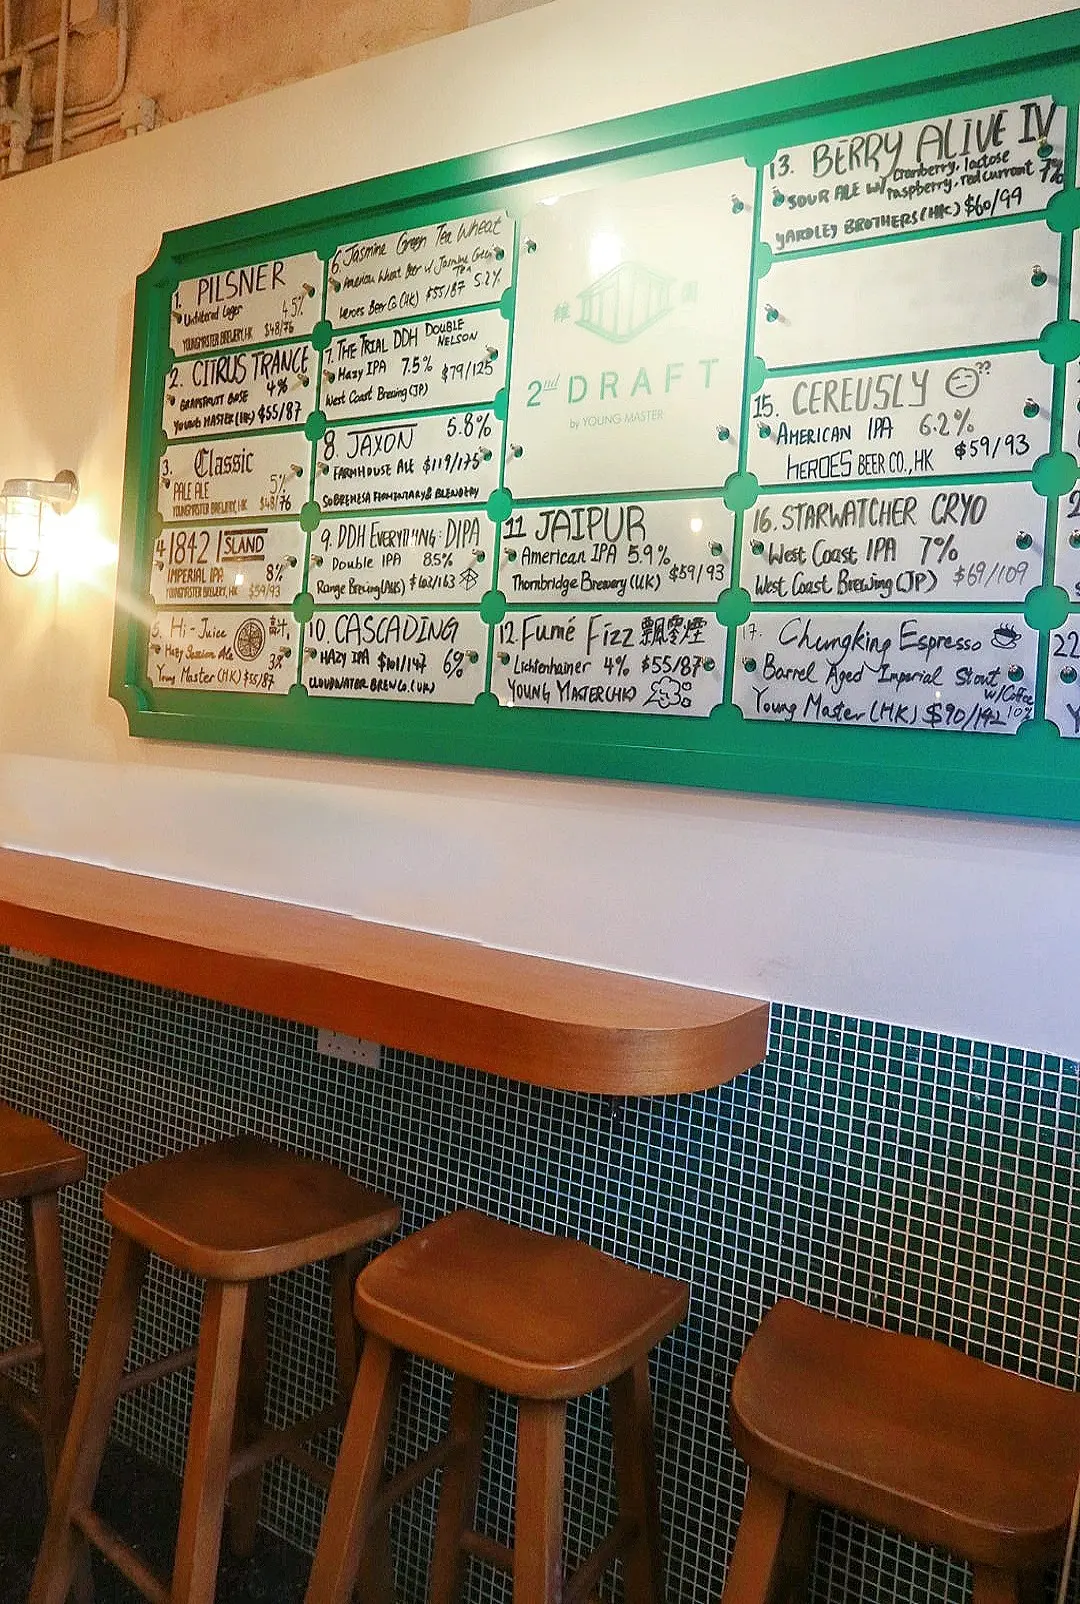 1. PILSNER
Unfiltered Lager 4.5%
YOUNGMASTER BREWERY, HK $48/76
2. CITRUS TRANCE
4%
GRAPEFRUIT GOSE
YOUNG MASTER (HK) $55/87
3. Classic
PALE ALE 5%
YOUNGMASTER BREWERY, HK $48/76
4 1842 ISLAND
IMPERIAL IPA 8%
YOUNGMASTER BREWERY, HK $59/93
5. Hi-Juice
Hazy Session Ale 3%
Young Master (HK) $55/87
6. Jasmine Green Tea Wheat
American Wheat Beer w/ Jasmine Green
Tea 5.2%
Heroes Beer Co (HK) $55/87
7. THE TRIAL DDH DOUBLE
NELSON
HAZY IPA 7.5% $79/125
West Coast Brewing (JP)
8. JAXON 5.8%
FARMHOUSE ALE $119/175
SOBREMESA FERMENTARY & BLENDERY
9. DDH EVERYTHING: DIPA
Double IPA 8.5%
Range Brewing (AUS) $102/163
10. CASCADING
HAZY IPA $101/147 6%
CLOUDWATER BREW CO. (UK)
維 園
2nd DRAFT
by YOUNG MASTER
11 JAIPUR
American IPA 5.9%
Thornbridge Brewery (UK) $59/93
12. Fumé Fizz 飄零煙
Lichtenhainer 4% $55/87
YOUNG MASTER (HK)
13. BERRY ALIVE IV
SOUR ALE w/ cranberry, lactose
raspberry, redcurrant 7%
YARDLEY BROTHERS (HK) $60/99
15. CEREUSLY ??
AMERICAN IPA 6.2%
HEROES BEER CO., HK $59/93
16. STARWATCHER CRYO
West Coast IPA 7%
West Coast Brewing (JP) $69/109
17. Chungking Espresso
Barrel Aged Imperial Stout
w/Coffee
Young Master (HK) $90/142 10%
22